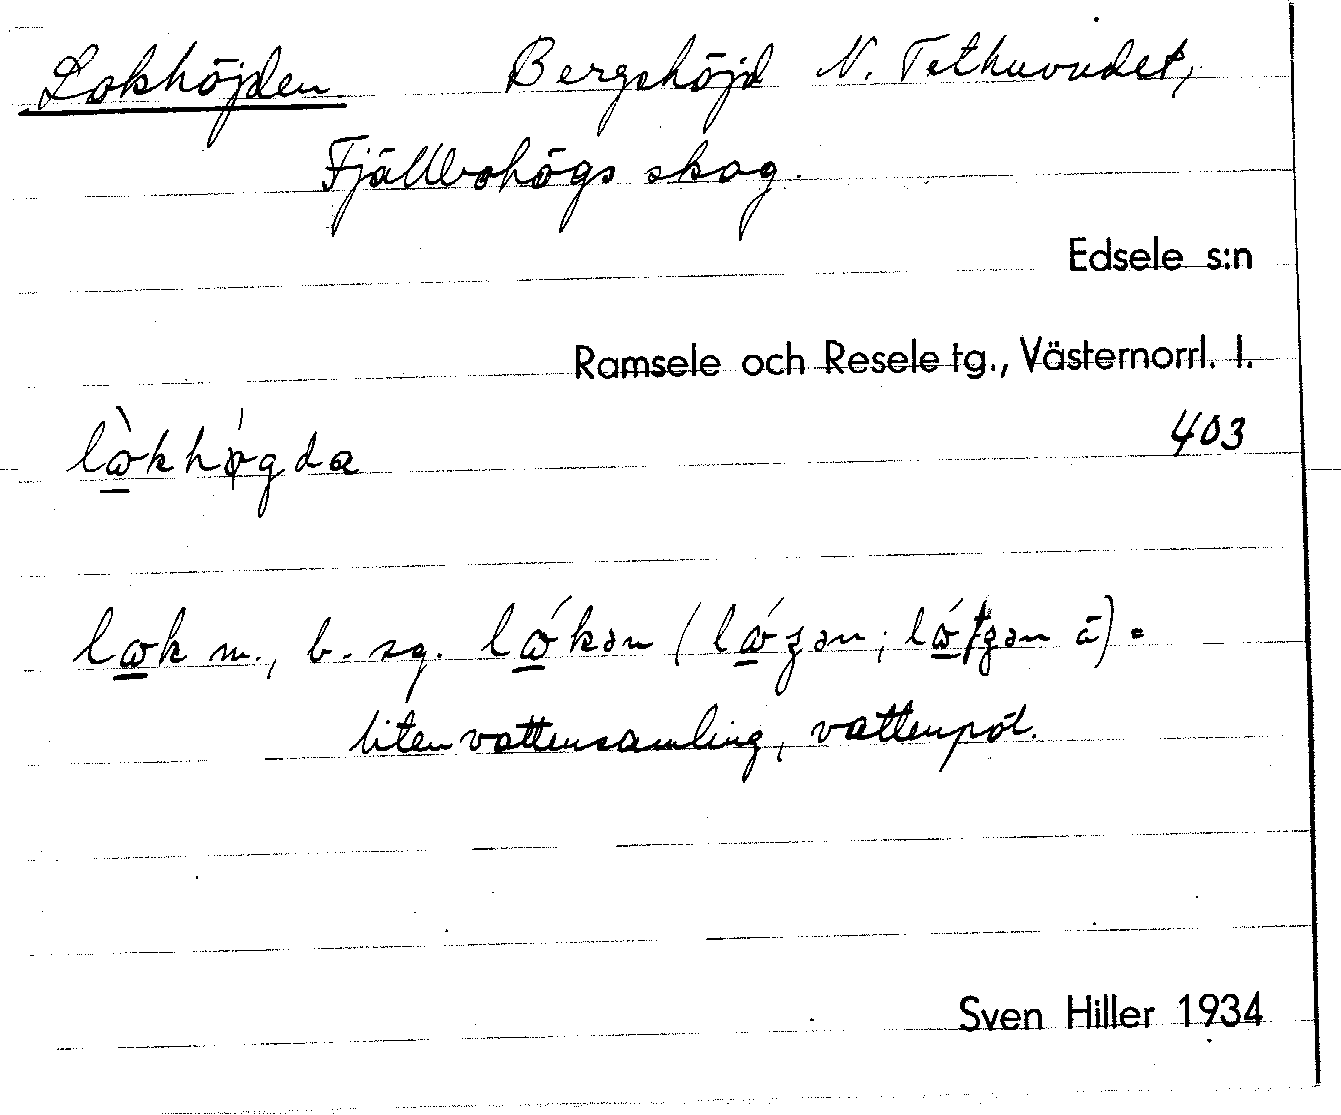 Lokhöjden. Bergshöjd N. Tethuvudet,
Fjällbohögs skog.
Edsele s:n
Ramsele och Resele tg., Västernorrl. l.
403
lὼ̲khǿgda
lω̲k m., b. sg. lώ̲kən
liten vattensamling, vattenpöl.
Sven Hiller 1934